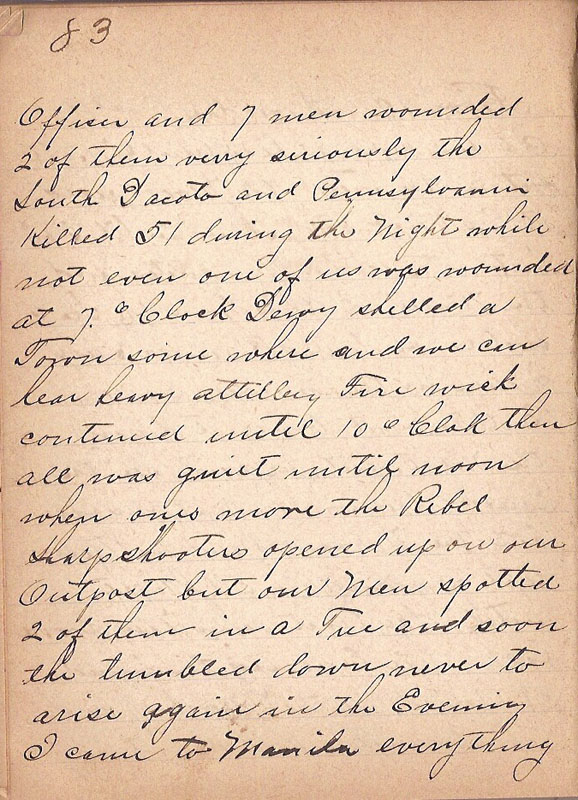 83
Offiser and 7 men wounded
2 of them verry seriously the
South Dacota and Pennsylvanin
Killed 51 during the Night while
not even one of us was wounded
at 7. o Clock Dewy shelled a
Town some where and we can
hear heavy attillery Fire wich
contenued until 10 o Clok then
all was quiet until noon
when ones more the Rebel
sharpshooters opened up on our
Outpost but our Men spotted
2 of them in a Tree and soon
the tumbled down never to
arise again in the Evening
I came to Manila everything